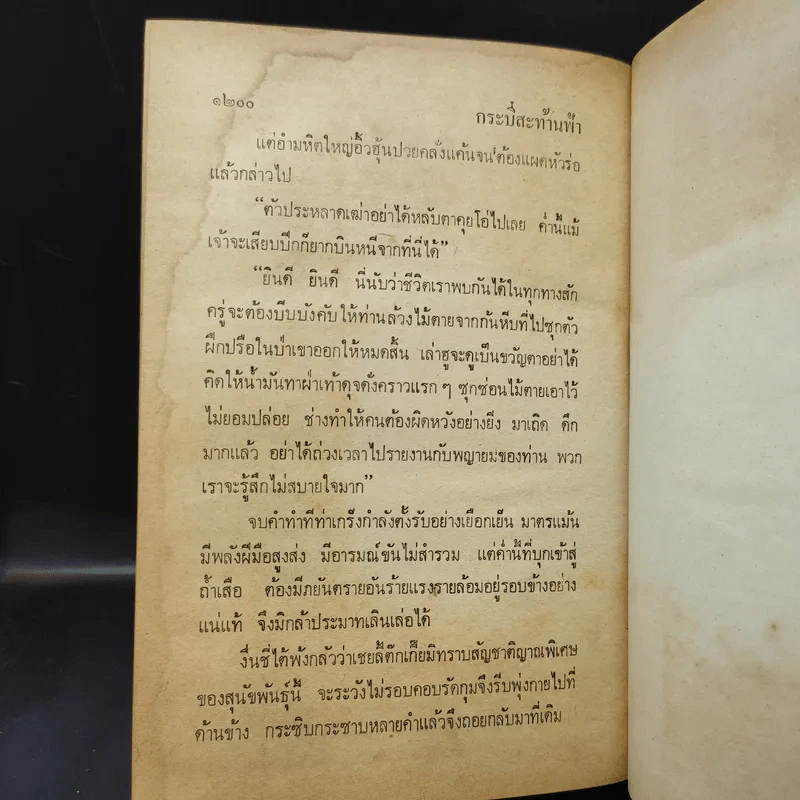 ๑๒๐๐
กระบี่สะท้านฟ้า
แต่อำมหิตใหญ่อิ้วฮุ้นปวยคลั่งแค้นจนต้องแผดหัวร่อ
แล้วกล่าวไป
“ตัวประหลาดเฒ่าอย่าได้หลับตาคุยโอ่ไปเลย ค่ำนี้แม้
เจ้าจะเสียบปีกก็ยากบินหนีจากที่นี่ได้”
“ยินดี ยินดี นี่นับว่าชีวิตเราพบกันได้ในทุกทางสัก
ครู่จะต้องบีบบังคับให้ท่านล้วงไม้ตายจากก้นหีบที่ไปซุกตัว
ฝึกปรือในป่าเขาออกให้หมดสิ้น เล่าฮูจะดูเป็นขวัญตาอย่าได้
คิดให้น้ำมันทาฝ่าเท้าดุจดั่งคราวแรก ๆ ซุกซ่อนไม้ตายเอาไว้
ไม่ยอมปล่อย ช่างทำให้คนต้องผิดหวังอย่างยิ่ง มาเถิด ดึก
มากแล้ว อย่าได้ถ่วงเวลาไปรายงานกับพญายมของท่าน พวก
เราจะรู้สึกไม่สบายใจมาก”
จบคำทำทีท่าเกร็งกำลังตั้งรับอย่างเยือกเย็น มาตรแม้น
มีพลังฝีมือสูงส่ง มีอารมณ์ขันไม่สำรวม แต่ค่ำนี้ที่บุกเข้าสู่
ถ้ำเสือ ต้องมีภยันตรายอันร้ายแรงรายล้อมอยู่รอบข้างอย่าง
แน่แท้ จึงมิกล้าประมาทเลินเล่อได้
งื่นซี่ไต้พ้งกลัวว่าเชยลี้ต๊กเกี๊ยมิทราบสัญชาติญาณพิเศษ
ของสุนัขพันธุ์นี้ จะระวังไม่รอบคอบรัดกุมจึงรีบพุ่งกายไปที่
ด้านข้าง กระซิบกระซาบหลายคำแล้วจึงถอยกลับมาที่เดิม